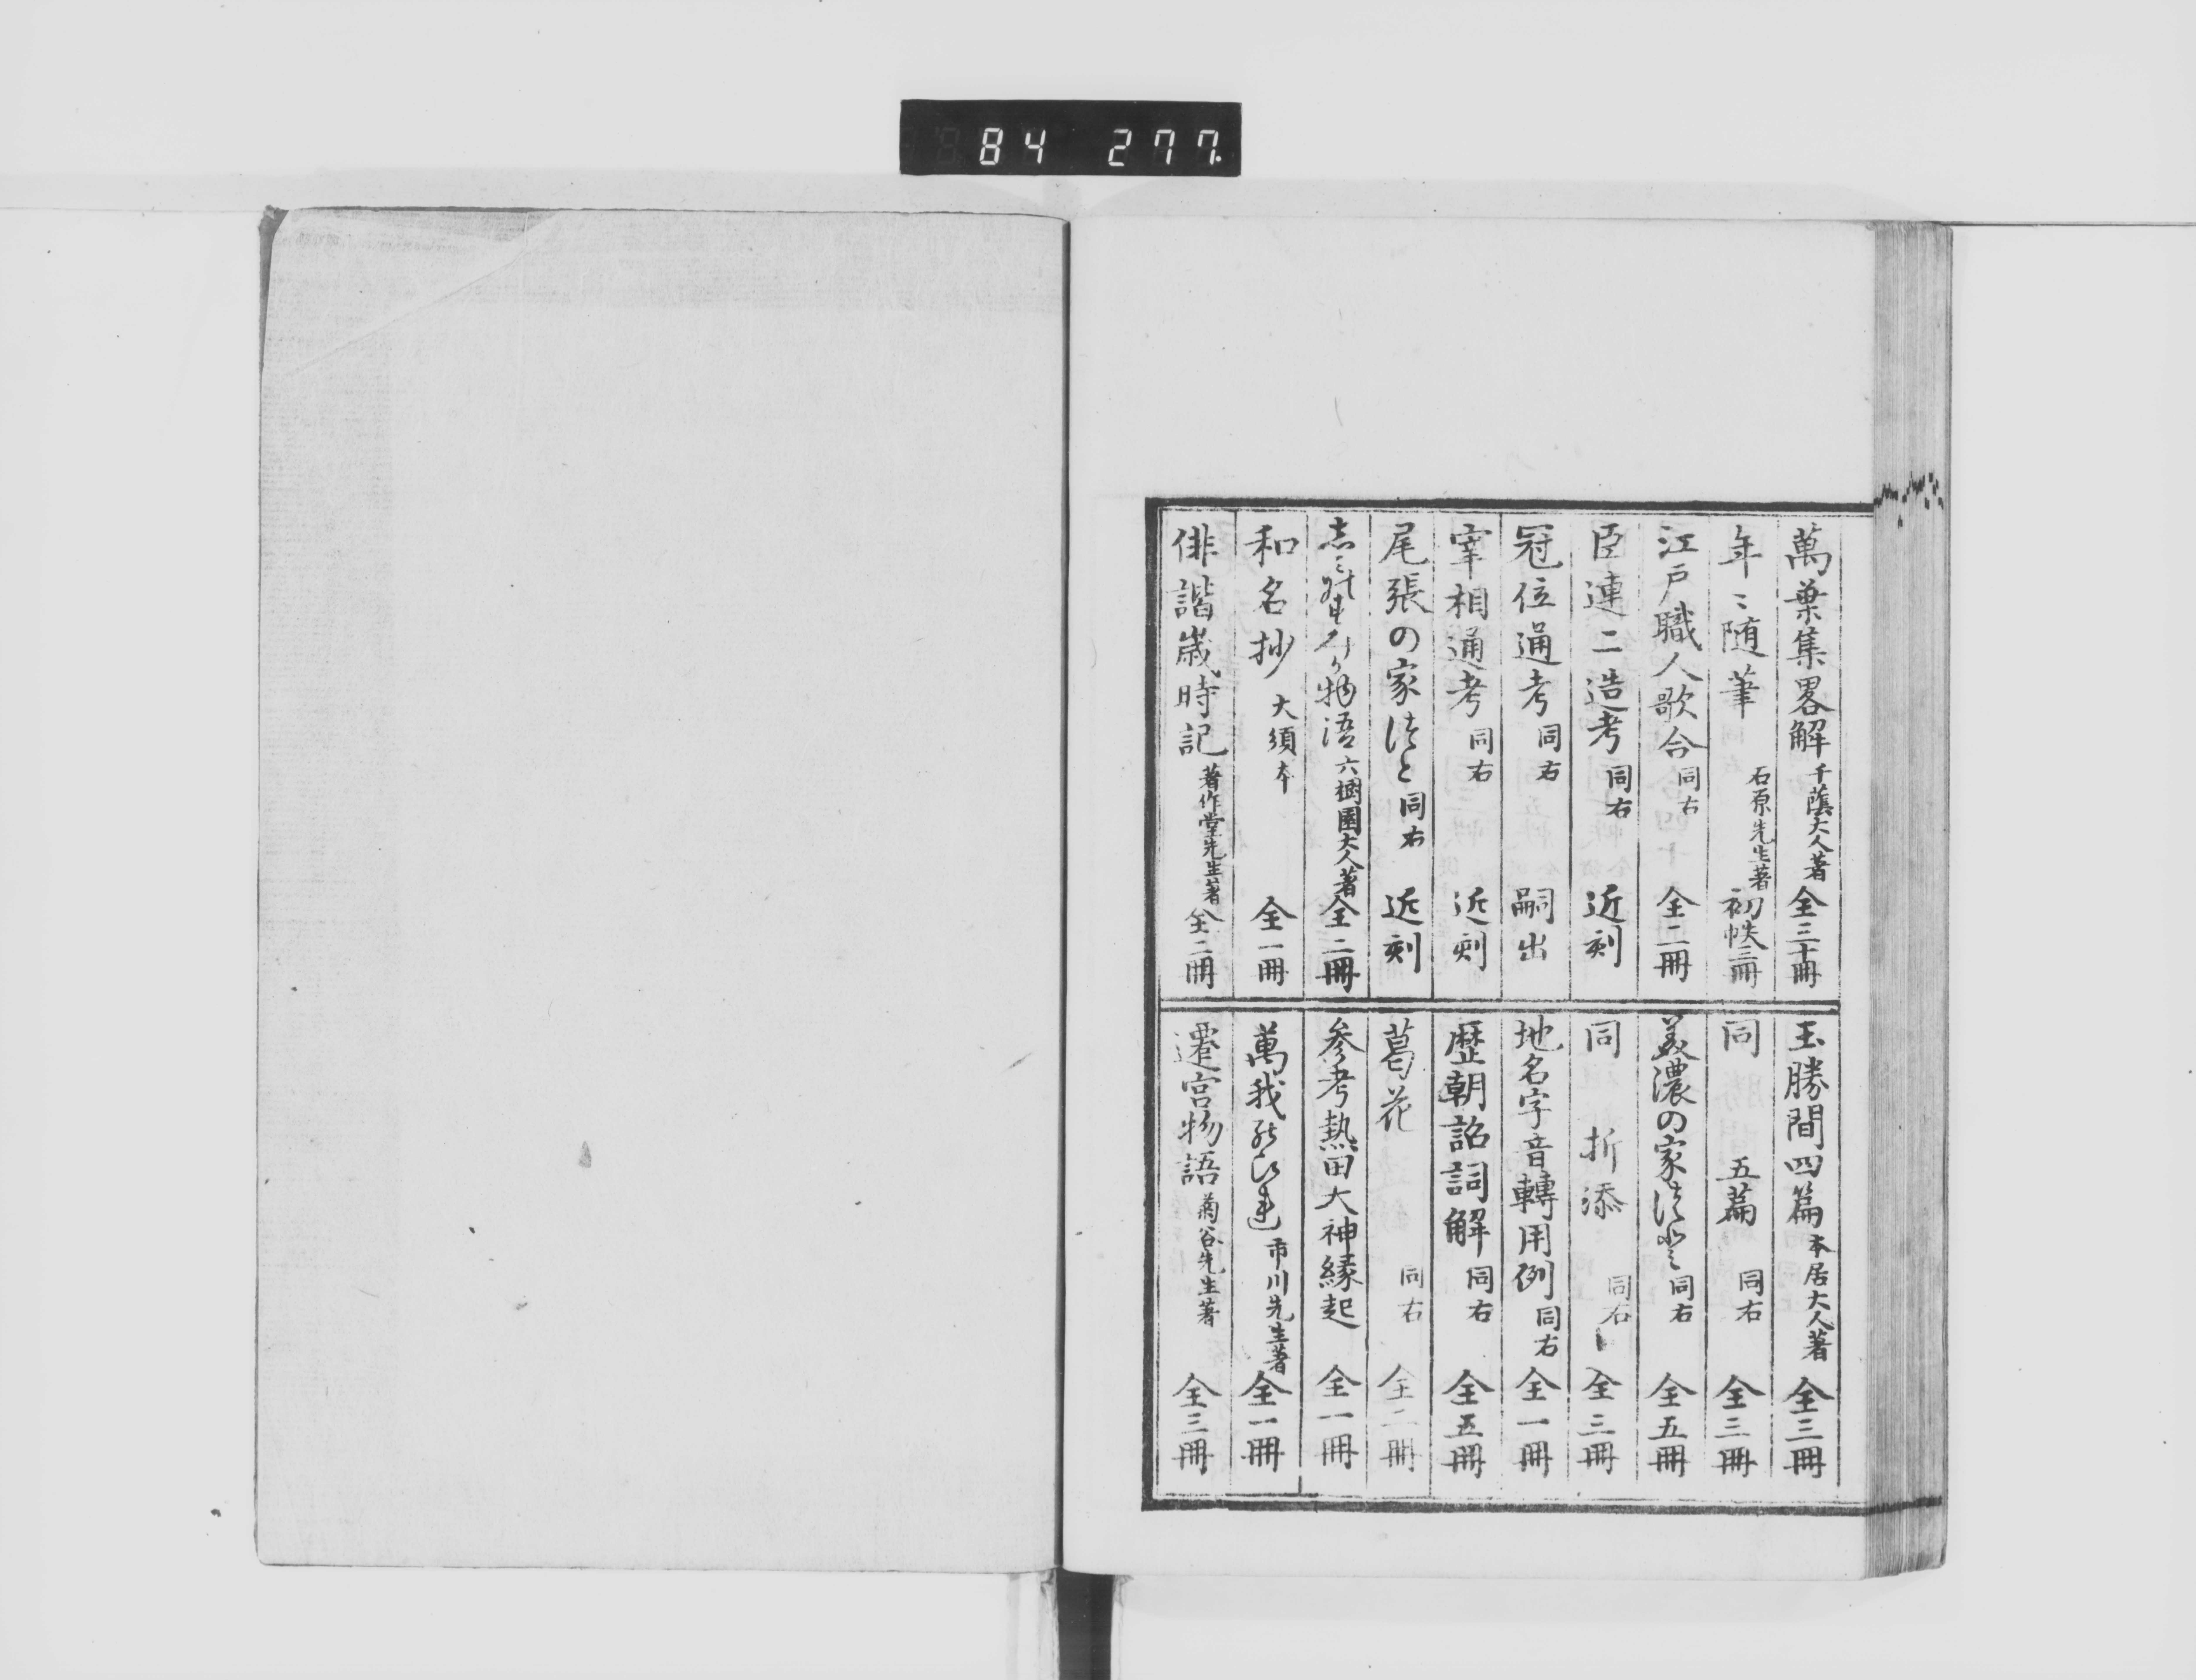 84 277.
萬葉集畧解 千蔭大人著 全三十冊
年〻随筆 石原先生著 初帙三冊
江戸職人歌合 同右 全二冊
臣連二造考 同右 近刻
冠位通考 同右 嗣出
宰相通考 同右 近刻
尾張の家 同右 近刻
物語 六樹園大人著 全二冊
和名抄 大須本 全一冊
俳諧歳時記 著作堂先生著 全二冊
玉勝間四篇 本居大人著 全三冊
同 五篇 同右 全三冊
美濃の家 同右 全五冊
同 折添 同右 全三冊
地名字音轉用例 同右 全一冊
歴朝詔詞解 同右 全五冊
葛花 同右 全二冊
参考熱田大神縁起 全一冊
萬我能 市川先生著 全一冊
遷宮物語 菊谷先生著 全三冊